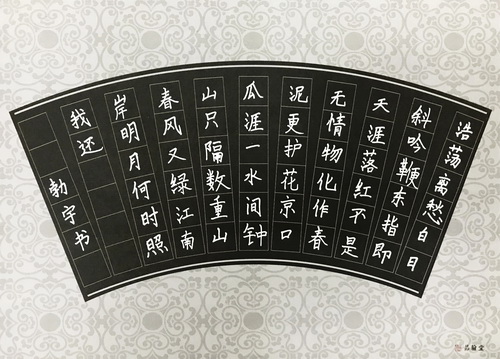 浩荡离愁白日
斜吟鞭东指即
天涯落红不是
无情物化作春
泥更护花京口
瓜涯一水间钟
山只隔数重山
春风又绿江南
岸明月何时照
我还
勃宇书